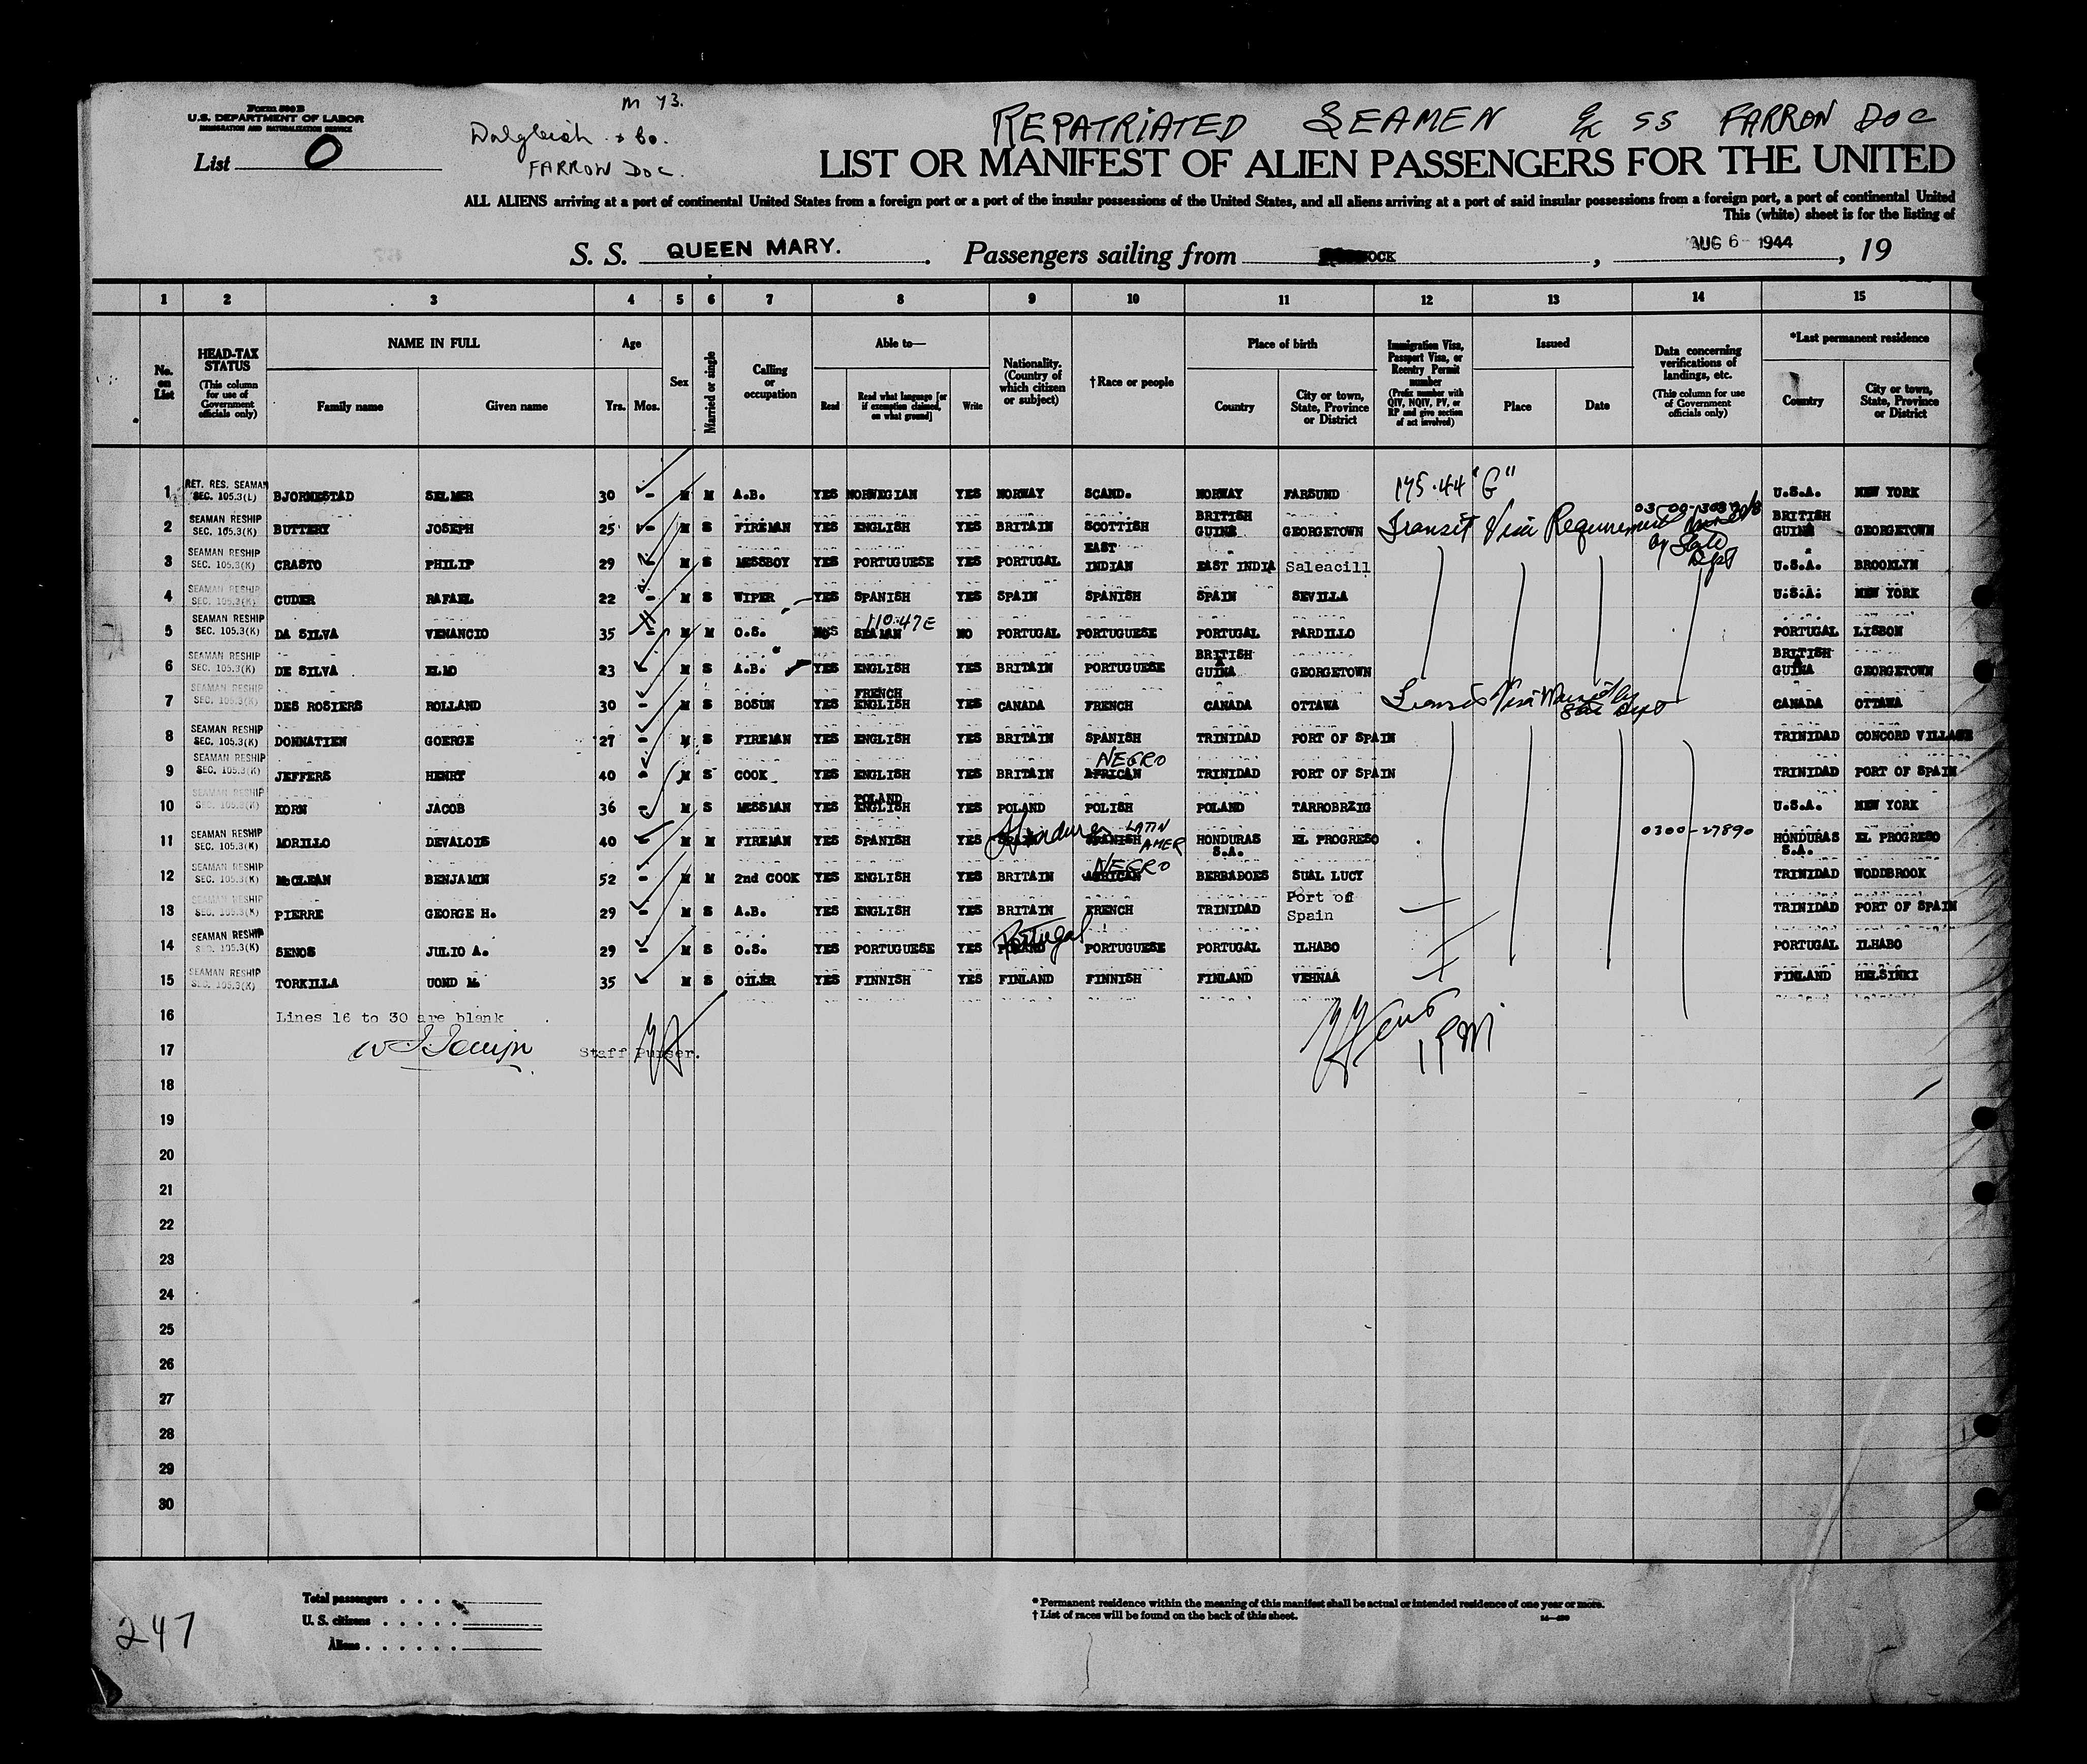 Form 500 B
U.S. DEPARTMENT OF LABOR
IMMIGRATION AND NATURALIZATION SERVICE
List O
M 43.
Dalgleish & Co.
FARROW DOC.
REPATRIATED SEAMEN Ex SS FARRON DOC
LIST OR MANIFEST OF ALIEN PASSENGERS FOR THE UNITED
ALL ALIENS arriving at a port of continental United States from a foreign port or a port of the insular possessions of the United States, and all aliens arriving at a port of said insular possessions from a foreign port, a port of continental United
This (white) sheet is for the listing of
S. S. QUEEN MARY. Passengers sailing from OCK , AUG 6 1944 , 19
1 2 3 4 5 6 7 8 9 10 11 12 13 14 15
No. on List
HEAD-TAX STATUS
(This column for use of Government officials only)
NAME IN FULL
Family name Given name
Age
Yrs. Mos.
Sex
Married or single
Calling or occupation
Able to—
Read
Read what language [or if exemption claimed, on what ground]
Write
Nationality. (Country of which citizen or subject)
†Race or people
Place of birth
Country
City or town, State, Province or District
Immigration Visa, Passport Visa, or Reentry Permit number
(Prefix number with QIV, NQIV, PV, or RP and give section of act involved)
Issued
Place Date
Data concerning verifications of landings, etc.
(This column for use of Government officials only)
*Last permanent residence
Country
City or town, State, Province or District
1 RET. RES. SEAMAN SEC. 105.3(L) BJORNESTAD SELMER 30 - M M A.B. YES NORWEGIAN YES NORWAY SCAND. NORWAY FARSUND 175.44 "G" U.S.A. NEW YORK
2 SEAMAN RESHIP SEC. 105.3(K) BUTTERY JOSEPH 25 - M S FIREMAN YES ENGLISH YES BRITAIN SCOTTISH BRITISH GUINA GEORGETOWN Transit Visa Requirement by State Dept BRITISH GUINA GEORGETOWN
3 SEAMAN RESHIP SEC. 105.3(K) CRASTO PHILIP 29 - M S MESSBOY YES PORTUGUESE YES PORTUGAL EAST INDIAN EAST INDIA Saleacill U.S.A. BROOKLYN
4 SEAMAN RESHIP SEC. 105.3(K) CUDER RAFAEL 22 - M S WIPER YES SPANISH YES SPAIN SPANISH SPAIN SEVILLA U.S.A. NEW YORK
5 SEAMAN RESHIP SEC. 105.3(K) DA SILVA VENANCIO 35 - M M O.S. 110.47E SEAMAN NO PORTUGAL PORTUGUESE PORTUGAL PARDILLO PORTUGAL LISBON
6 SEAMAN RESHIP SEC. 105.3(K) DE SILVA ELMO 23 M S A.B. YES ENGLISH YES BRITAIN PORTUGUESE BRITISH GUINA GEORGETOWN BRITISH GUINA GEORGETOWN
7 SEAMAN RESHIP SEC. 105.3(K) DES ROSIERS ROLLAND 30 - M S BOSUN YES FRENCH ENGLISH YES CANADA FRENCH CANADA OTTAWA Transit Visa by State Dept CANADA OTTAWA
8 SEAMAN RESHIP SEC. 105.3(K) DONNATIEN GOERGE 27 - M S FIREMAN YES ENGLISH YES BRITAIN SPANISH TRINIDAD PORT OF SPAIN TRINIDAD CONCORD VILLAGE
9 SEAMAN RESHIP SEC. 105.3(K) JEFFERS HENRY 40 - M S COOK YES ENGLISH YES BRITAIN NEGRO AFRICAN TRINIDAD PORT OF SPAIN TRINIDAD PORT OF SPAIN
10 SEAMAN RESHIP SEC. 105.3(K) KORN JACOB 36 M S MESSMAN YES POLAND ENGLISH YES POLAND POLISH POLAND TARROBRZIG U.S.A. NEW YORK
11 SEAMAN RESHIP SEC. 105.3(K) MORILLO DEVALOIS 40 - M M FIREMAN YES SPANISH YES Honduras LATIN AMER SPANISH HONDURAS S.A. EL PROGRESO 0300-27890 HONDURAS S.A. EL PROGRESO
12 SEAMAN RESHIP SEC. 105.3(K) McCLEAN BENJAMIN 52 - M M 2nd COOK YES ENGLISH YES BRITAIN NEGRO AFRICAN BERBADOES SUAL LUCY TRINIDAD WODDBROOK
13 SEAMAN RESHIP SEC. 105.3(K) PIERRE GEORGE H. 29 - M S A.B. YES ENGLISH YES BRITAIN FRENCH TRINIDAD Port of Spain TRINIDAD PORT OF SPAIN
14 SEAMAN RESHIP SEC. 105.3(K) SENOS JULIO A. 29 - M S O.S. YES PORTUGUESE YES Portugal PORTUGUESE PORTUGAL ILHABO PORTUGAL ILHABO
15 SEAMAN RESHIP SEC. 105.3(K) TORKILLA UONO M. 35 M S OILER YES FINNISH YES FINLAND FINNISH FINLAND VEHNAA FINLAND HELSINKI
16 Lines 16 to 30 are blank
17 Staff Purser.
18
19
20
21
22
23
24
25
26
27
28
29
30
Total passengers
U. S. citizens
Aliens
* Permanent residence within the meaning of this manifest shall be actual or intended residence of one year or more.
† List of races will be found on the back of this sheet.
247